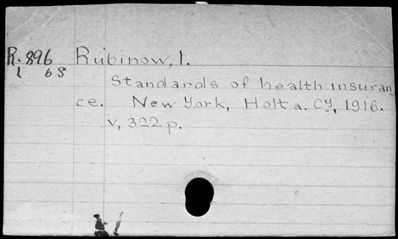 R.896 Rubinow, I.
1 68
Standards of health insuran
ce. New York, Holt a. Cy, 1916.
v, 322 p.